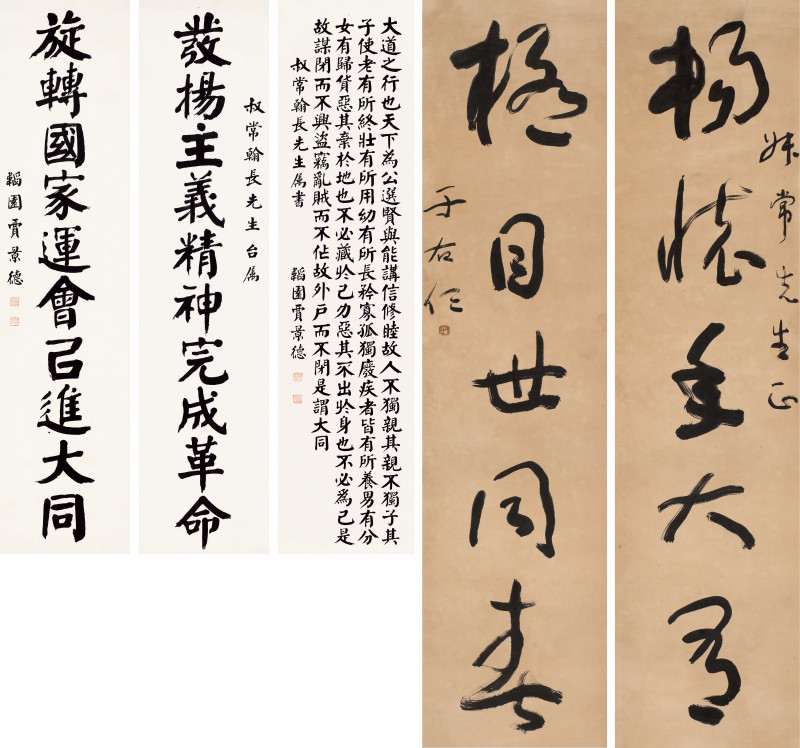 叔常先生正
暢懷年大有
極目世同春
于右任
大道之行也天下為公選賢與能講信修睦故人不獨親其親不獨子其
子使老有所終壯有所用幼有所長矜寡孤獨廢疾者皆有所養男有分
女有歸貨惡其棄於地也不必藏於己力惡其不出於身也不必為己是
故謀閉而不興盜竊亂賊而不作故外戶而不閉是謂大同
叔常翰長先生屬書 韜園賈景德
叔常翰長先生台屬
發揚主義精神完成革命
旋轉國家運會㠯進大同
韜園賈景德